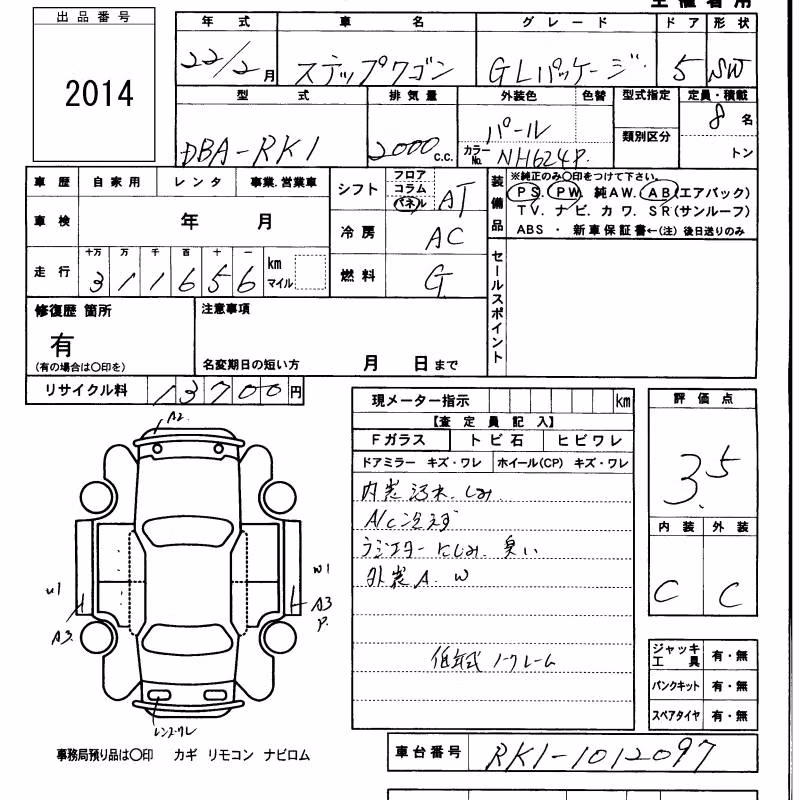 主催者用
出品番号
2014
年式 車名 グレード ドア 形状
22/2月 ステップワゴン GLパッケージ 5 SW
型式 排気量 外装色 色替 型式指定 定員・積載
DBA-RK1 2000 c.c. パール 類別区分 8名
カラーNo. NH624P. トン
車歴 自家用 レンタ 事業.営業車
車検 年 月
走行 十万 万 千 百 十 一 km マイル
311656
シフト フロア コラム パネル AT
冷房 AC
燃料 G
装備品
※純正のみ〇印をつけて下さい。
PS. PW. 純AW. AB(エアバック)
TV. ナビ. カワ. SR(サンルーフ)
ABS ・ 新車保証書←(注) 後日送りのみ
セールスポイント
修復歴 箇所
有
(有の場合は〇印を)
注意事項
名変期日の短い方 月 日まで
リサイクル料 13700円
現メーター指示 km
【査定員記入】
Fガラス トビ石 ヒビワレ
ドアミラー キズ・ワレ ホイール(CP) キズ・ワレ
内装 汚れ.しみ
A/C冷えず
ラジエターにじみ. 臭い
外装 A. W
低年式 ノークレーム
評価点
3.5
内装 外装
C C
ジャッキ工具 有・無
パンクキット 有・無
スペアタイヤ 有・無
A2.
U1
A3.
W1
A3
P.
レンズワレ
事務局預り品は〇印 カギ リモコン ナビロム
車台番号 RK1-1012097